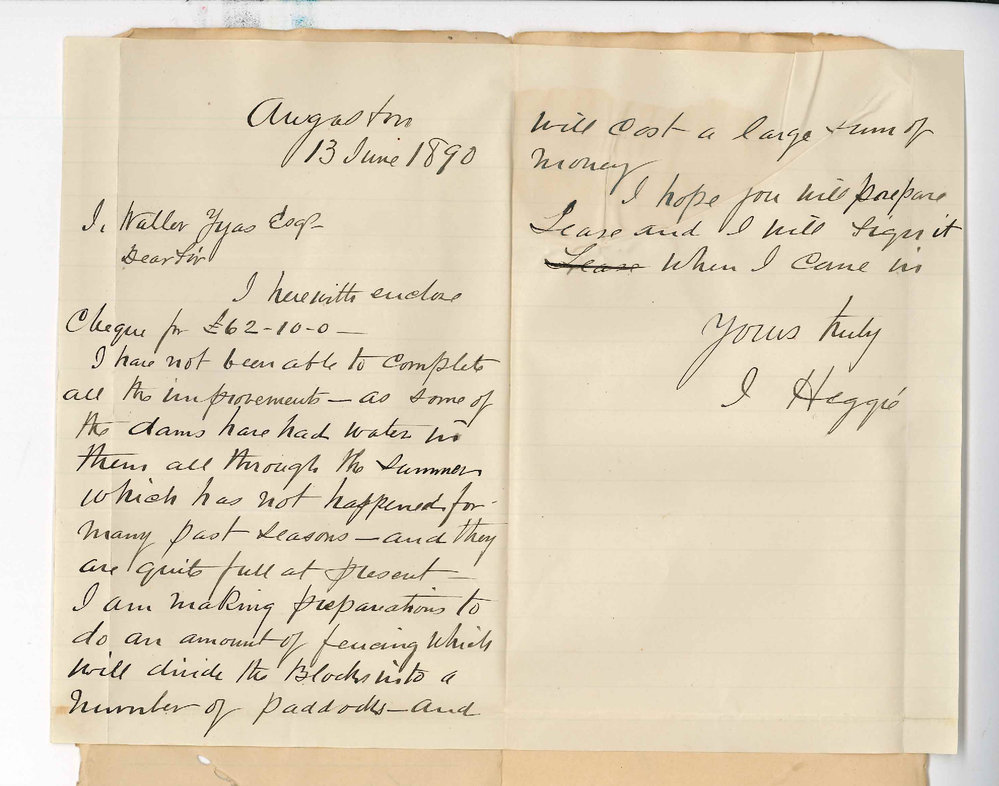 Angaston
13 June 1890
J. Walter Tyas Esqr
Dear Sir
I herewith enclose
Cheque for £62-10-0—
I have not been able to complete
all the improvements — as some of
the dams have had water in
them all through the summer
which has not happened for
many past seasons — and they
are quite full at present —
I am making preparations to
do an amount of fencing which
will divide the Blocks into a
number of paddocks — and
will cost a large sum of
money
I hope you will prepare
Lease and I will sign it
Lease when I come in
Yours truly
J Heggie